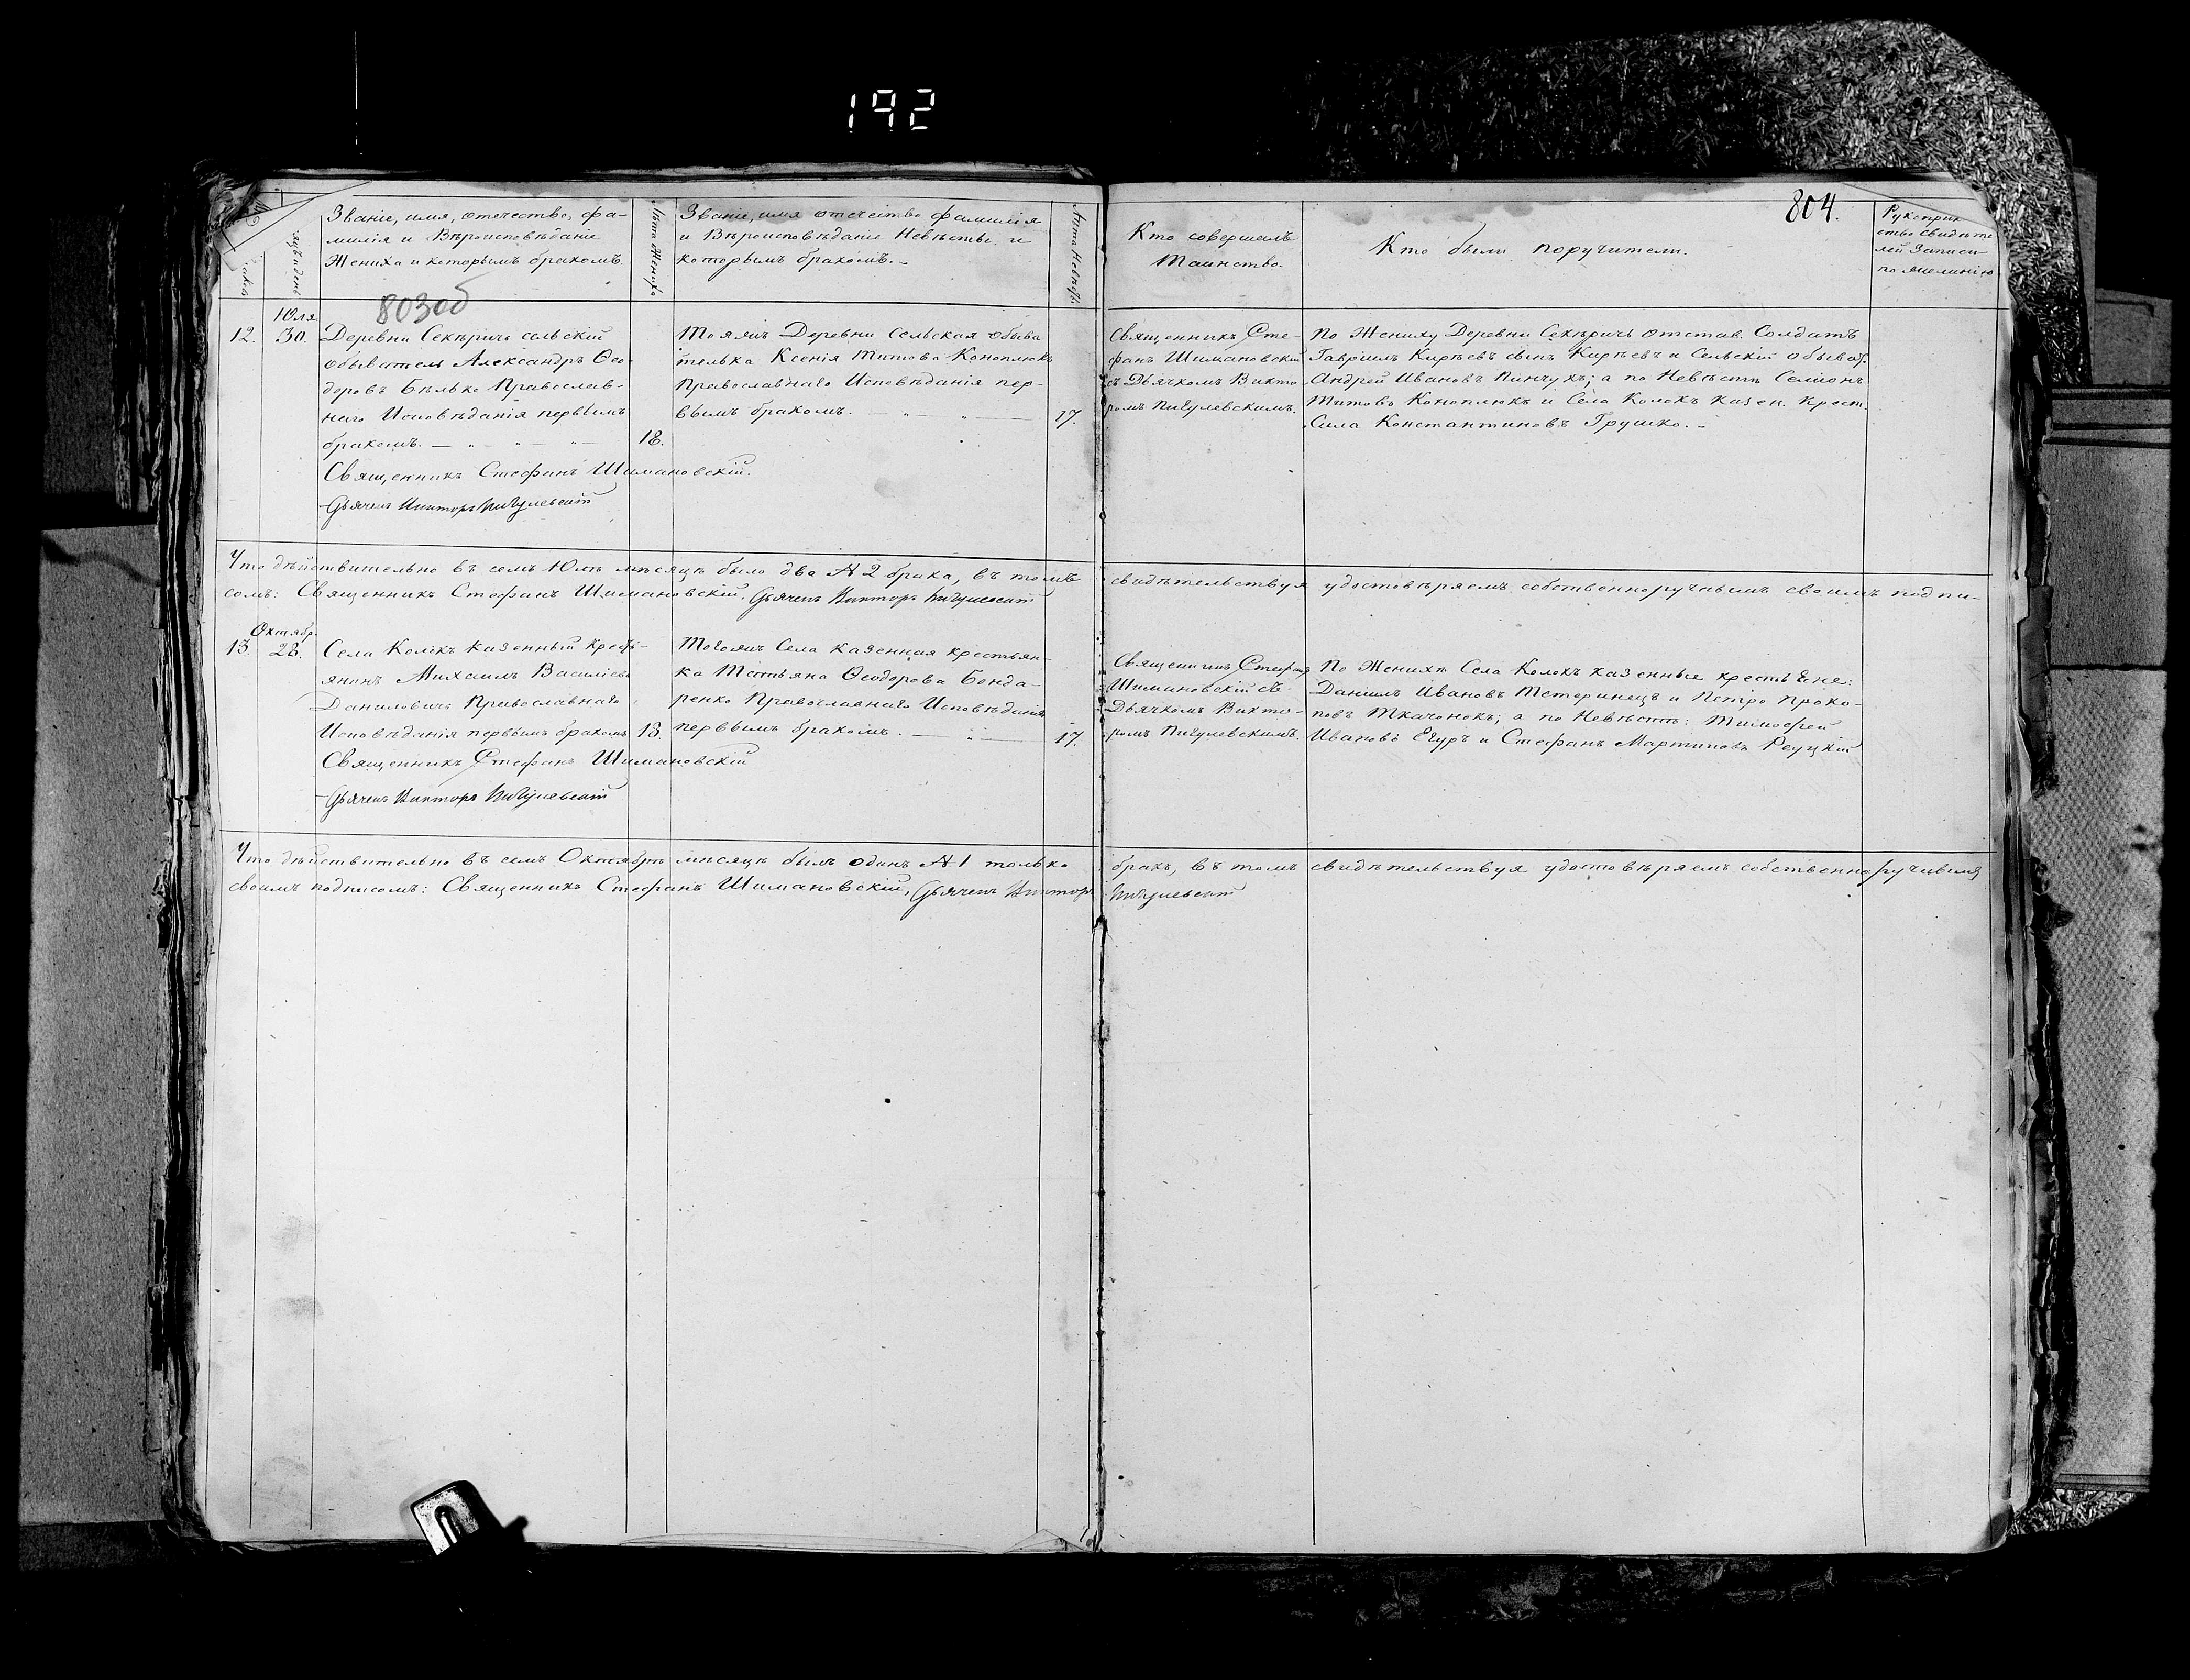 192
804.
Званіе, имя, отечество, фа-
милія и Вѣроисповѣданіе
Жениха и которымъ бракомъ.
Лѣта Жениха
Званіе, имя отечество фамилія
и Вѣроисповѣданіе Невѣсты и
которымъ бракомъ.
Лѣта Невѣсты.
Кто совершалъ
Таинство.
Кто были поручители.
Рукоприк
ство свидѣте
лей Записи
по желанію
803об
Юля
12. 30. Деревни Секѣричъ сельскій
обыватель Александръ Ѳео-
доровъ Бѣлько Православ-
наго Исповѣданія первымъ
бракомъ. 18.
Тояжъ Деревни сельская обыва
телька Ксенія Титова Коноплюкъ
Православнаго Исповѣданія пер-
вымъ бракомъ. 17.
Священникъ Сте-
фанъ Шимановскій
съ Дьячкомъ Викто-
ромъ Пигулевскимъ.
По Жениху Деревни Секѣричъ отстав. Солдатъ
Гавріилъ Кирѣевъ сынъ Кирѣевъ и Сельскій обыват.
Андрей Ивановъ Пинчукъ; а по Невѣстѣ Семіонъ
Титовъ Коноплюкъ и Села Колокъ казен. крест.
Сила Константиновъ Грушко.
Священникъ Стефанъ Шимановскій.
Дьячекъ Викторъ Пигулевскій
Что дѣйствительно въ семъ Юлѣ мѣсяцѣ было два № 2 брака, въ томъ свидѣтельствуя удостовѣряемъ собственноручнымъ своимъ подпи-
сомъ: Священникъ Стефанъ Шимановскій, Дьячекъ Викторъ Пигулевскій
Октябр.
13. 28. Села Колокъ казенный крест-
янинъ Михаилъ Василіевъ
Даниловичъ Православнаго
Исповѣданія первымъ бракомъ 18.
Тогожъ Села казенная крестьян-
ка Татьяна Ѳеодорова Бонда-
ренко Православнаго Исповѣданія
первымъ бракомъ. 17.
Священникъ Стефанъ
Шимановскій съ
Дьячкомъ Викто-
ромъ Пигулевскимъ.
По Женихѣ Села Колокъ казенные крестьяне:
Даніилъ Ивановъ Тетеринецъ и Петро Проко-
повъ Ткачонокъ; а по Невѣстѣ: Тимофей
Ивановъ Егуръ и Стефанъ Мартиновъ Реуцкій
Священникъ Стефанъ Шимановскій
Дьячекъ Викторъ Пигулевскій
Что дѣйствительно въ семъ Октябрѣ мѣсяцѣ былъ одинъ № 1 только бракъ, въ томъ свидѣтельствуя удостовѣряемъ собственноручнымъ
своимъ подписомъ: Священникъ Стефанъ Шимановскій, Дьячекъ Викторъ Пигулевскій